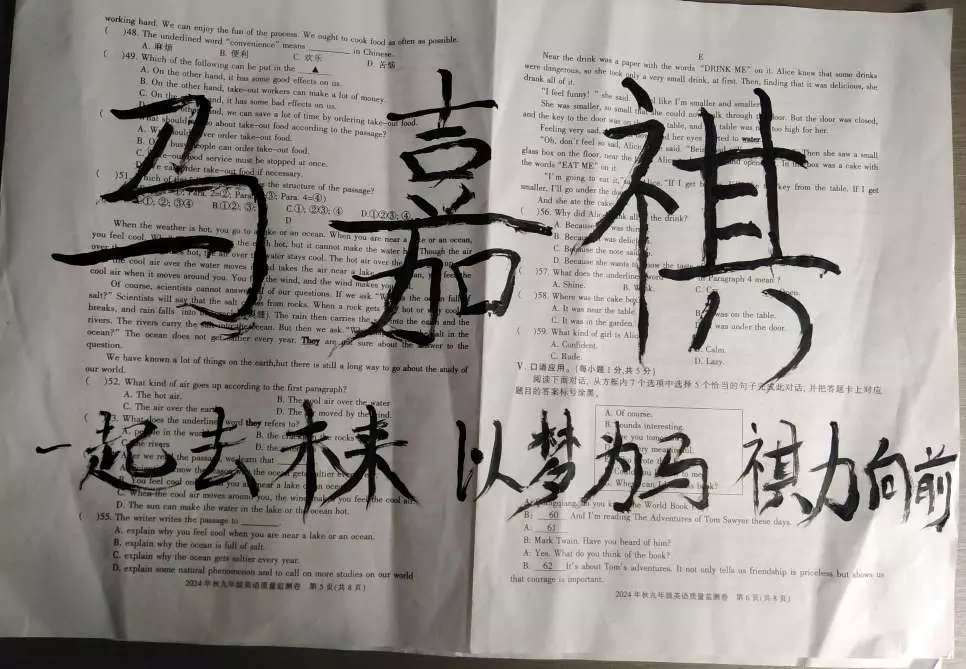 马嘉祺
一起去未来 以梦为马 祺力向前
working hard. We can enjoy the fun of the process. We ought to cook food as often as possible.
( )48. The underlined word "convenience" means ______ in Chinese.
A. 麻烦 B. 便利 C. 欢乐 D. 苦恼
( )49. Which of the following can be put in the ▲
A. On the other hand, it has some good effects on us.
B. On the other hand, take-out workers can make a lot of money.
C. On the hand, it has some bad effects on us.
we can save a lot of time by ordering take-out food.
should about take-out food according to the passage?
A. order take-out food.
B. people can order take-out food.
food service must be stopped at once.
order take-out food if necessary.
( )51. the structure of the passage?
Para. 2=②; Para. ③; Para. 4=④)
①; ②; ③④ B.①②; ③; C.①; ②③; ④ D.①②③; ④
D
When the weather is hot, you go to a lake or an ocean. When you are near a lake or an ocean,
you feel cool. hot, but it cannot make the water Though the air
over water stays cool. The hot air over the
the cool air over the water moves takes the air near a lake feel the
cool air when it moves around you. You the wind, and the wind makes you
Of course, scientists cannot answer of our questions. If we ask "Why is the ocean full of
salt?" Scientists will say that the salt from rocks. When a rock gets hot or cool
breaks, and rain falls into The rain then carries the into the earth and the
rivers. The rivers carry the salt into the ocean. But then we ask, "Why salt in the
ocean?" The ocean does not get saltier every year. They are not sure about the answer to the
question.
We have known a lot of things on the earth,but there is still a long way to go about the study of
our world.
( )52. What kind of air goes up according to the first paragraph?
A. The hot air. B. The cool air over the water
C. The air over the earth D. The moved by the wind.
What does the underlined word they refers to?
A. people in the world B. the rocks
C. the rivers D. the
After we read the passage, we learn that
know the ocean gets saltier
B. You feel cool near a lake
C. When the cool air moves around you, the wind makes you feel the cool air
D. The sun can make the water in the lake or the ocean hot.
( )55. The writer writes the passage to ______
A. explain why you feel cool when you are near a lake or an ocean.
B. explain why the ocean is full of salt.
C. explain why the ocean gets saltier every year.
D. explain some natural phenomenon and to call on more studies on our world
2024年秋九年级英语质量监测卷 第5页(共8页)
E
Near the drink was a paper with the words "DRINK ME" on it. Alice knew that some drinks
were dangerous, so she took only a very small drink, at first. Then, finding that it was delicious, she
drank all of it.
"I feel funny!" she said. like I'm smaller and smaller
She was smaller, so small that she could now walk through the door. But the door was closed,
and the key to the door was on table, and the table was too high for her.
Feeling very sad, her eyes started to water
"Oh, don't feel so sad, Alice said. "Being Then she saw a small
glass box on the floor, near the Alice opened In the box was a cake with
the words "EAT ME" on it.
"I'm going to eat it," Alice. "If I get key from the table. If I get
smaller, I'll go under the door
And she ate the cake
( )56. Why did Alice drink all the drink?
A. Because was
B. Because was delicious
C. Because the note said
D. Because she wants to know the taste
( )57. What does the underlined Paragraph 4 mean?
A. Shine. B. C.
( )58. Where was the cake box
A. It was near the table. B. It was on the table.
C. It was in the garden. D. It was under the door.
( )59. What kind of girl is Alice
A. Confident. B. Calm.
C. Rude. D. Lazy.
V. 口语应用。(每小题1分,共5分)
阅读下面对话, 从方框内7个选项中选择5个恰当的句子完成此对话, 并把答题卡上对应
题目的答案标号涂黑。
A. Of course.
B. Sounds interesting.
you
very meaningful.
to me
When can book?
A: you the World Book
B: 60 And I'm reading The Adventures of Tom Sawyer these days.
A: 61
B: Mark Twain. Have you heard of him?
A: Yes. What do you think of the book?
B. 62 It's about Tom's adventures. It not only tells us friendship is priceless but shows us
that courage is important.
2024年秋九年级英语质量监测卷 第6页(共8页)